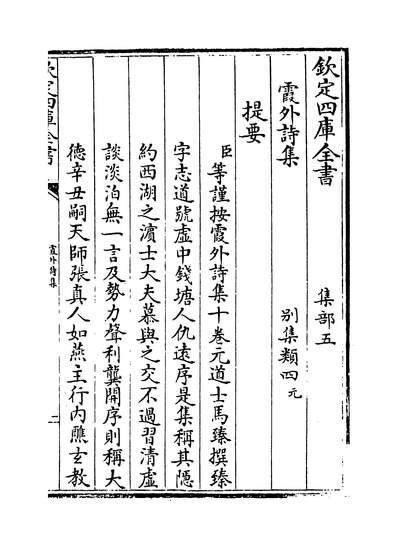 欽定四庫全書　集部五
霞外詩集　別集類四元
提要
臣等謹按霞外詩集十卷元道士馬臻撰臻
字志道號虛中錢塘人仇遠序是集稱其隱
約西湖之濵士大夫慕與之交不過習清虛
談淡泊無一言及勢力聲利龔開序則稱大
德辛丑嗣天師張真人如燕主行內醮玄教
欽定四庫全書
霞外詩集